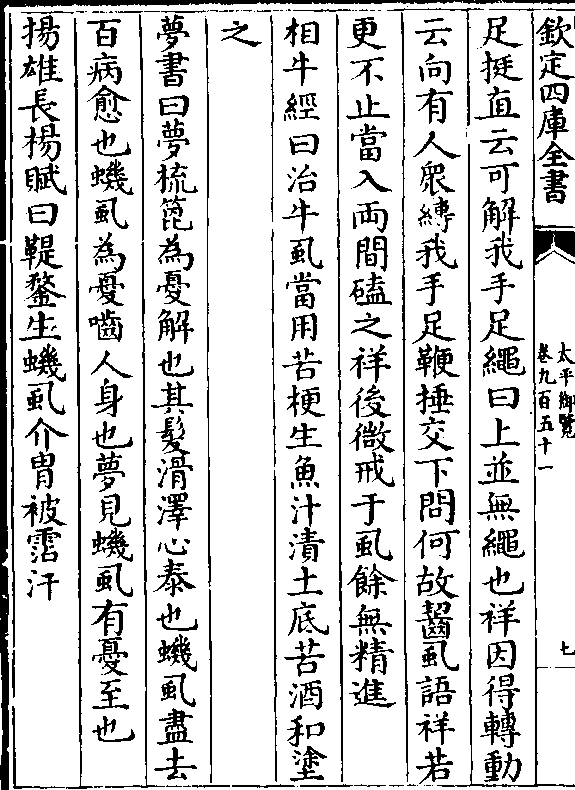 欽定四庫全書
太平御覽
卷九百五十一
七
足挺直云可解我手足繩曰上並無繩也祥因得轉動
云向有人眾縛我手足鞭捶交下問何故齧虱語祥若
更不止當入両間磕之祥後微戒于虱餘無精進
相牛經曰治牛虱當用苦梗生魚汁漬土底苦酒和塗
之
夢書曰夢梳篦為憂解也其髮滑澤心泰也蟣虱盡去
百病愈也蟣虱為憂嚙人身也夢見蟣虱有憂至也
揚雄長楊賦曰鞮鍪生蟣虱介胄被霑汗